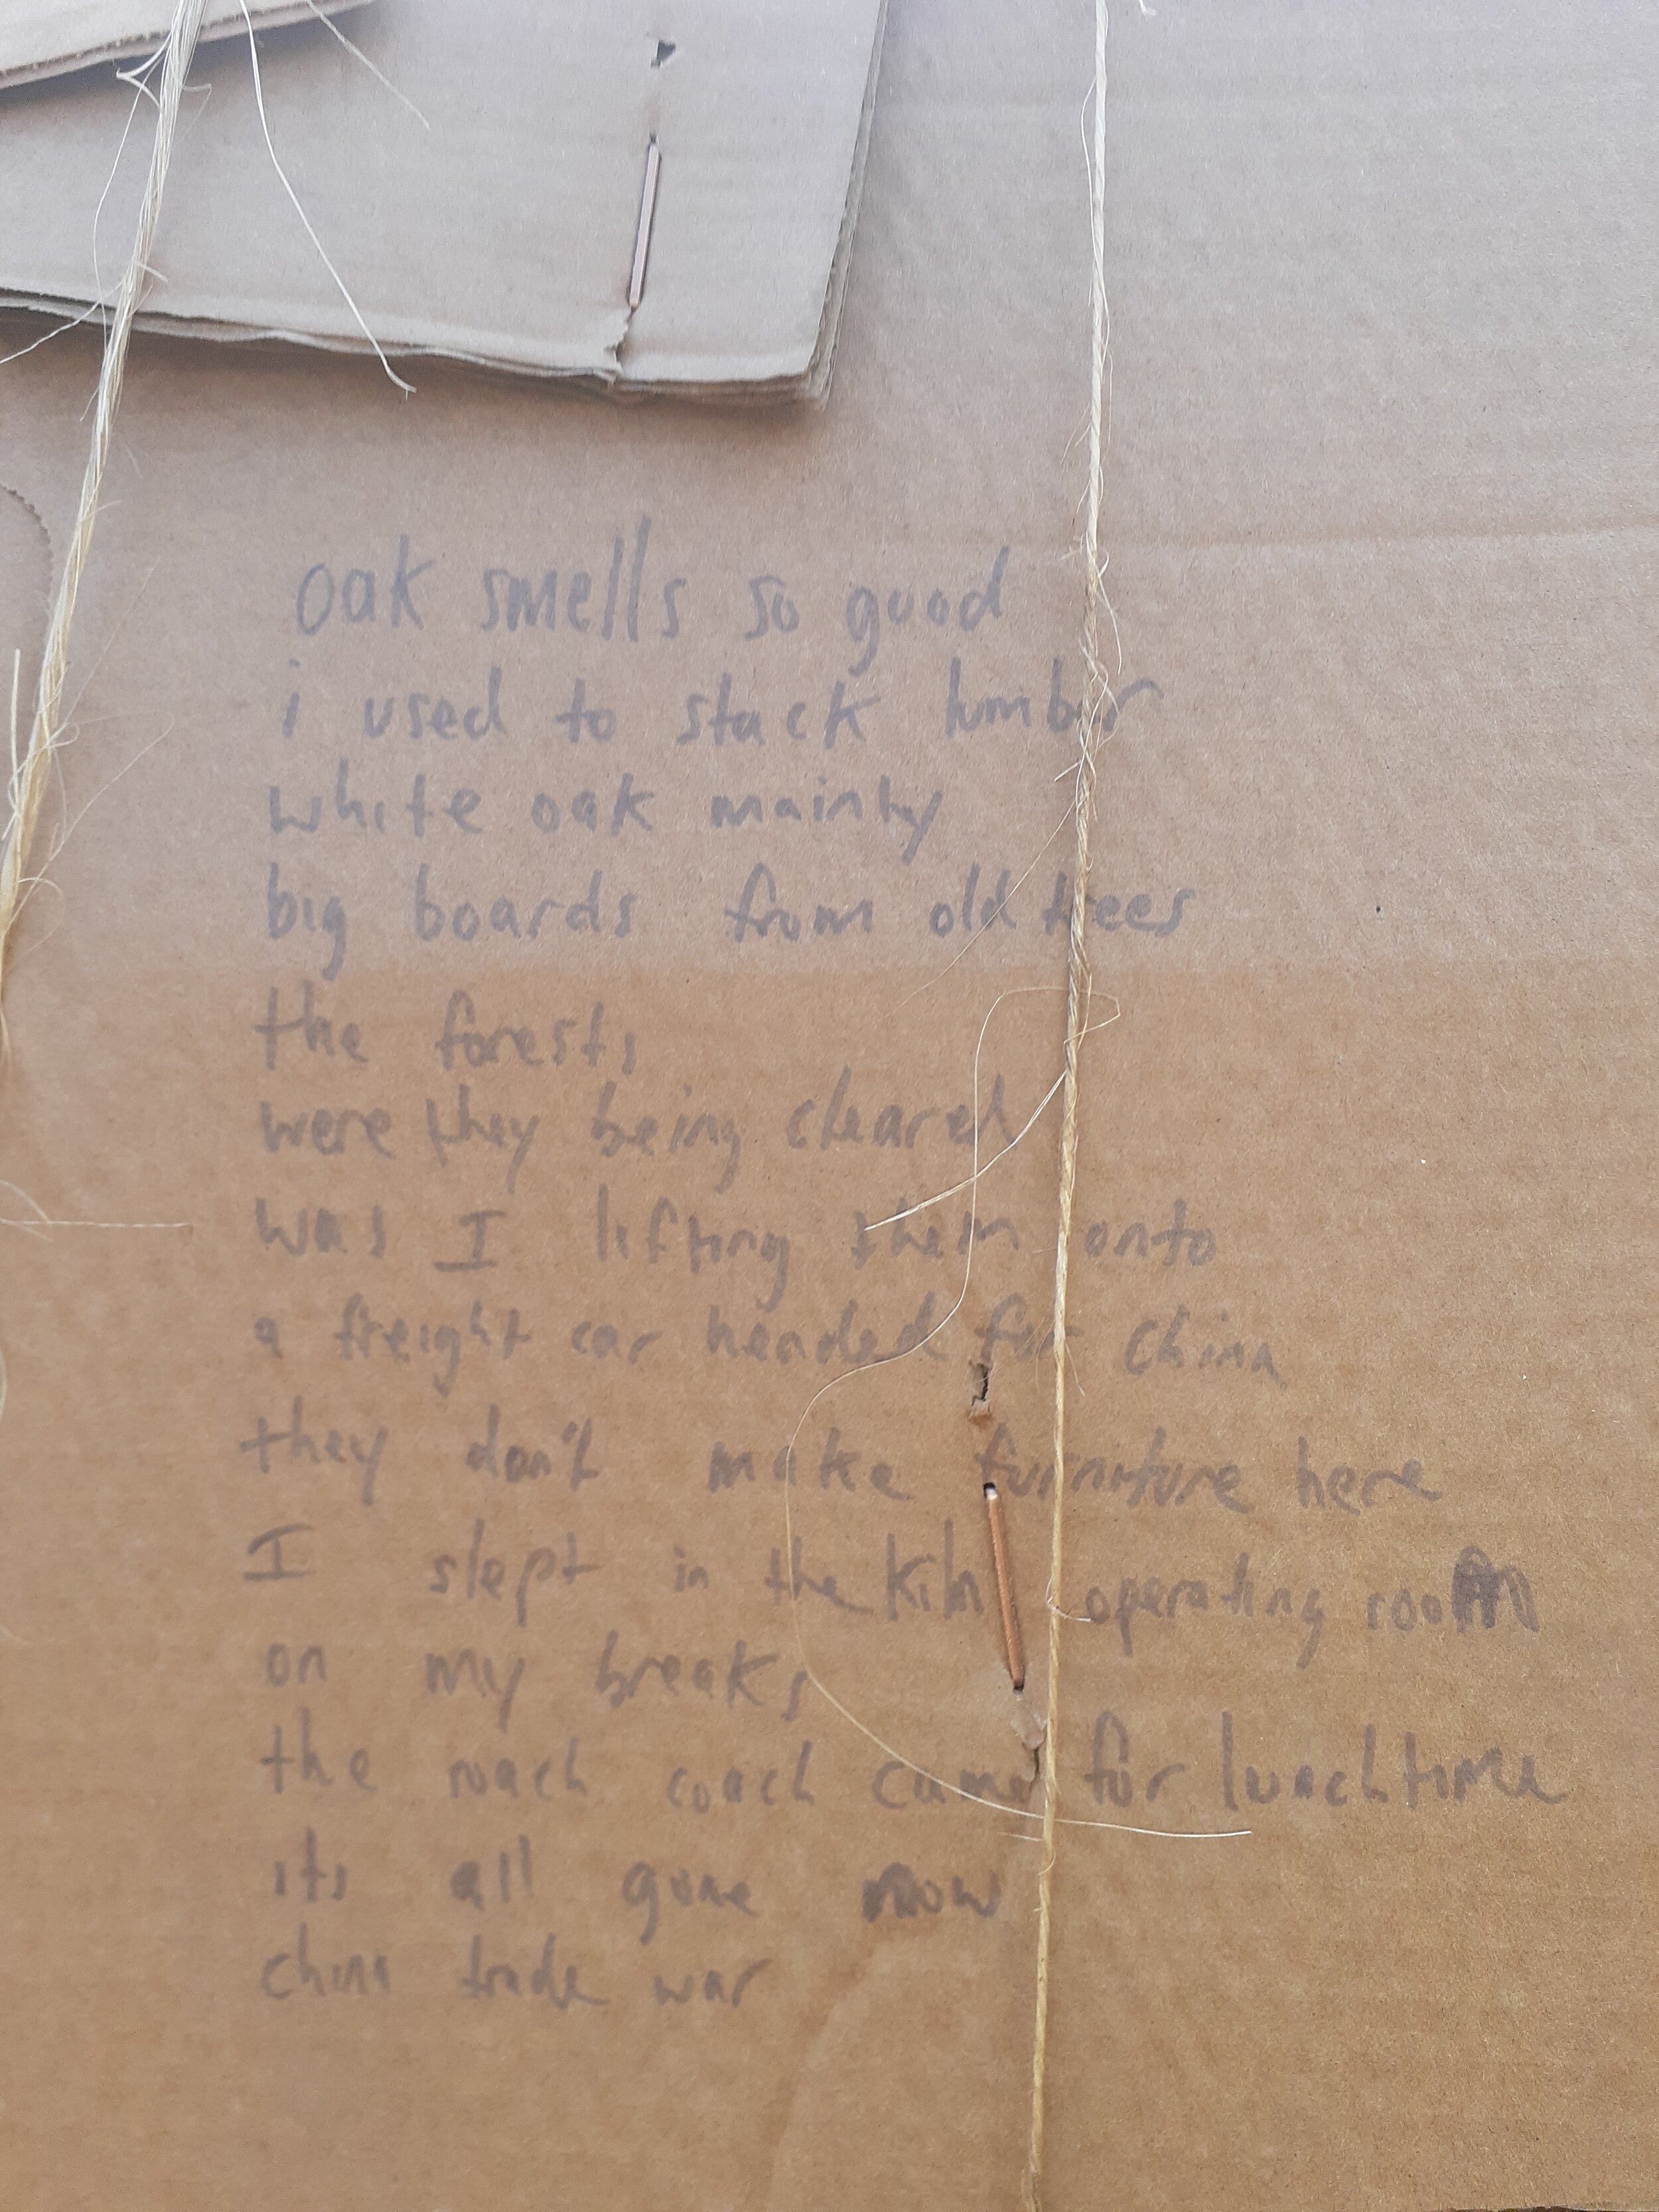 oak smells so good
i used to stack lumber
white oak mainly
big boards from old trees
the forests
were they being cleared
was I lifting them onto
a freight car headed for china
they don't make furniture here
I slept in the kiln operating room
on my breaks
the roach coach came for lunchtime
its all gone now
china trade war